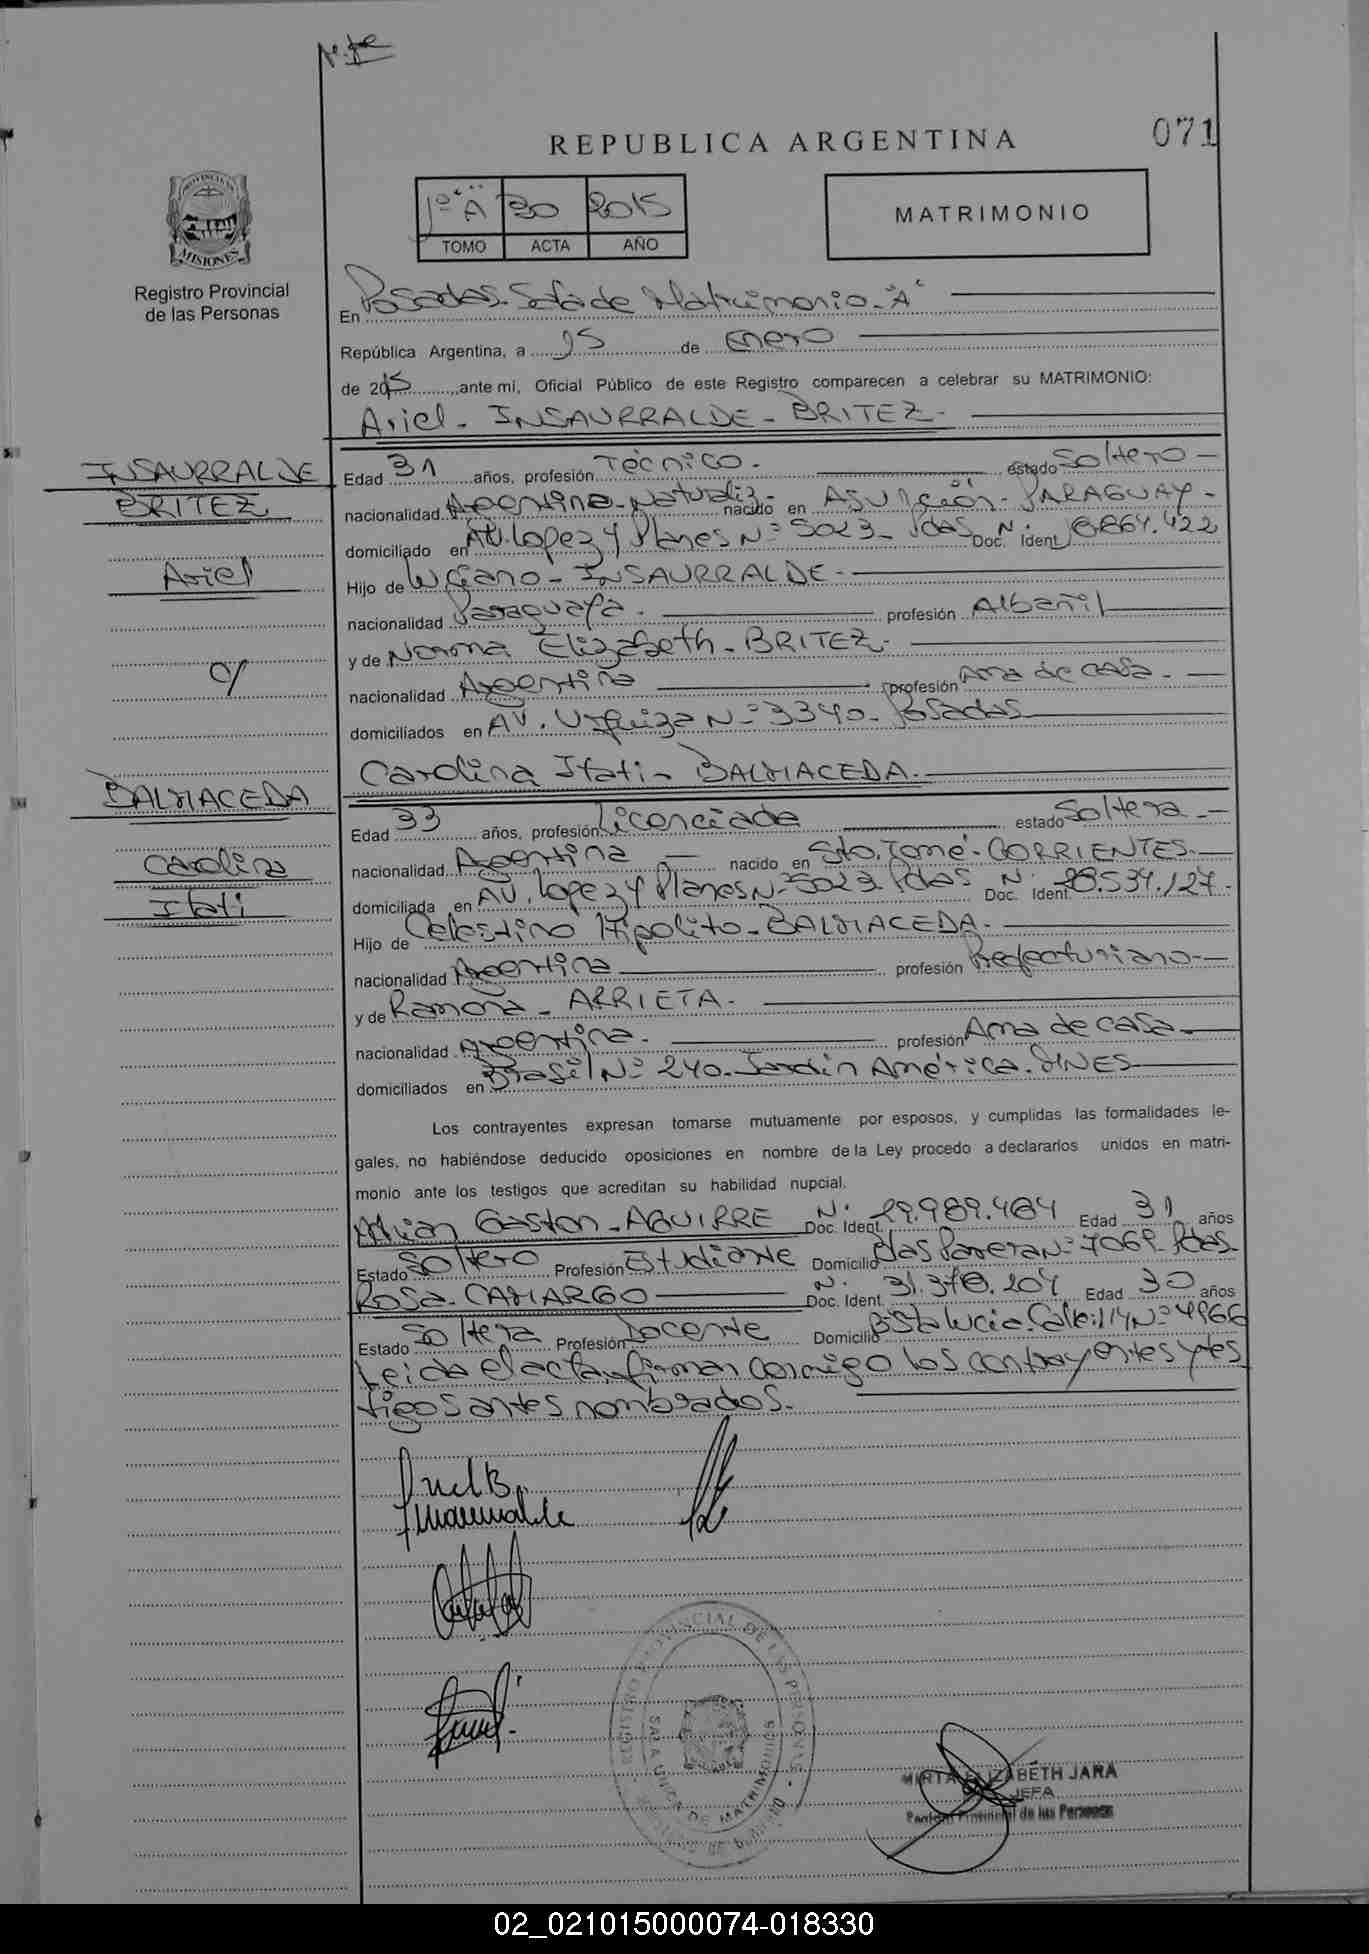 REPUBLICA ARGENTINA
071
1º "A" 30 2015
TOMO ACTA AÑO
MATRIMONIO
MISIONES
Registro Provincial
de las Personas
En Posadas. Sala de Matrimonio "A"
República Argentina, a 15 de Enero
de 2015, ante mi, Oficial Público de este Registro comparecen a celebrar su MATRIMONIO:
Ariel - INSAURRALDE - BRITEZ -
INSAURRALDE
BRITEZ
Ariel
c/
BALMACEDA
Carolina
Itati
Edad 31 años, profesión Técnico. estado Soltero
nacionalidad Argentina Naturaliz- nacido en Asunción - PARAGUAY -
domiciliado en AV. Lopez y Planes Nº 5023 - Pdas Doc. Ident Nº 864.422
Hijo de Luciano - INSAURRALDE -
nacionalidad Paraguaya. profesión Albañil
y de Norma Elizabeth - BRITEZ -
nacionalidad Argentina profesión Ama de casa.
domiciliados en AV. Urquiza Nº 3340. Posadas
Carolina Itati - BALMACEDA.
Edad 33 años, profesión Licenciada estado Soltera
nacionalidad Argentina nacido en Sto. Tomé - CORRIENTES.
domiciliada en AV. Lopez y Planes Nº 5023 Pdas Doc. Ident. Nº 28.534.127.
Hijo de Celestino Hipolito - BALMACEDA.
nacionalidad Argentina profesión Prefecturiano
y de Ramona - ARRIETA.
nacionalidad Argentina. profesión Ama de casa
domiciliados en Brasil Nº 240. Jardin América. MNES
Los contrayentes expresan tomarse mutuamente por esposos, y cumplidas las formalidades le-
gales, no habiéndose deducido oposiciones en nombre de la Ley procedo a declararlos unidos en matri-
monio ante los testigos que acreditan su habilidad nupcial.
Gaston - AGUIRRE Doc. Ident. Nº 29.989.484 Edad 31 años
Estado Soltero Profesión Estudiante Domicilio Blas Parera Nº 7068 Pdas.
Rosa - CAMARGO Doc. Ident. Nº 31.378.204 Edad 30 años
Estado Soltera Profesión Docente Domicilio Bº Sta Lucia. Calle 114 Nº 4966
Leida el acta, firman conmigo los contrayentes y tes
tigos antes nombrados.
REGISTRO PROVINCIAL DE LAS PERSONAS
SALA UNICA DE MATRIMONIOS
MIRTA ELIZABETH JARA
JEFA
Registro Provincial de las Personas
02_021015000074-018330